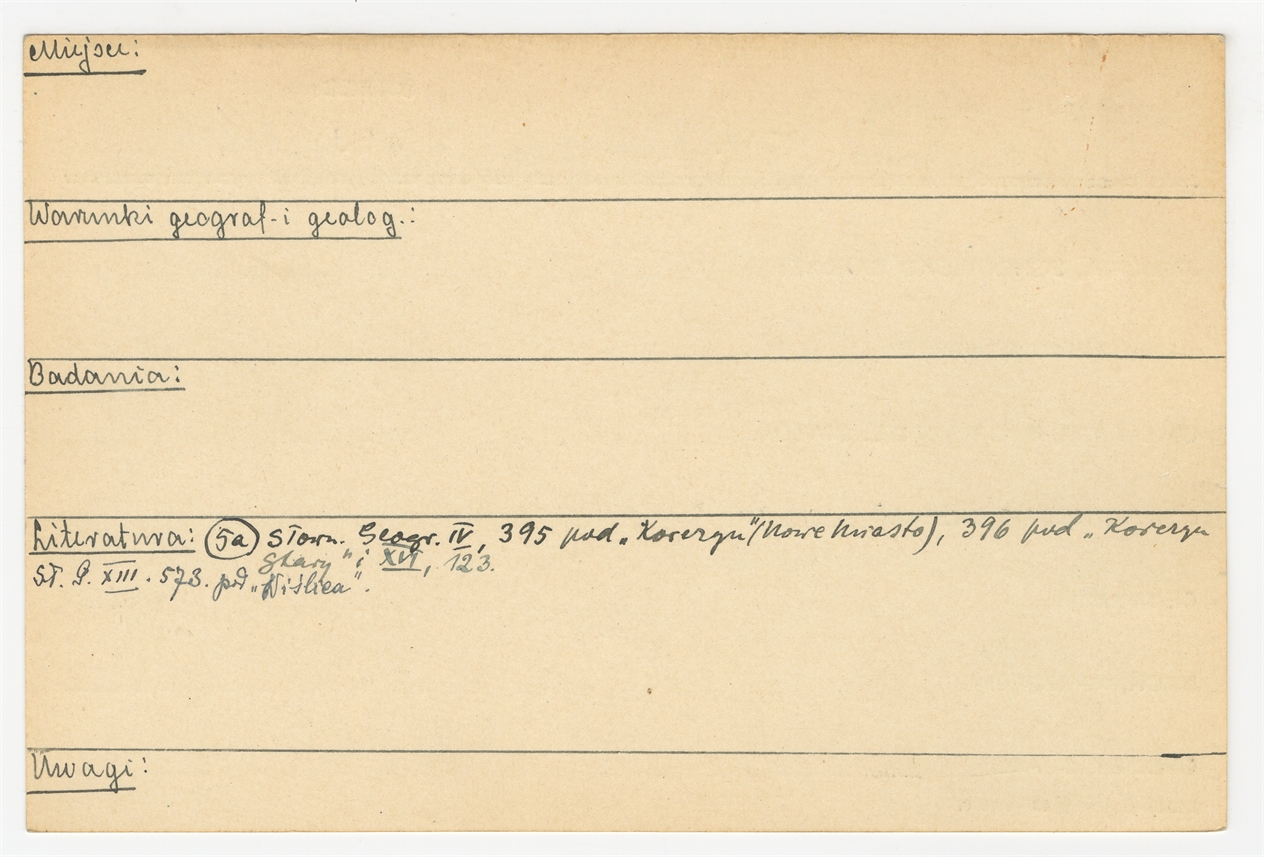 Miejsce:
Warunki geograf. i geolog.:
Badania:
Literatura: (5a) Słown. Geogr. IV, 395 pod „Korczyn" (Nowe Miasto), 396 pod „Korczyn
Stary" i XVI, 123.
Sł. G. XIII. 573. pod „Wiślica".
Uwagi: